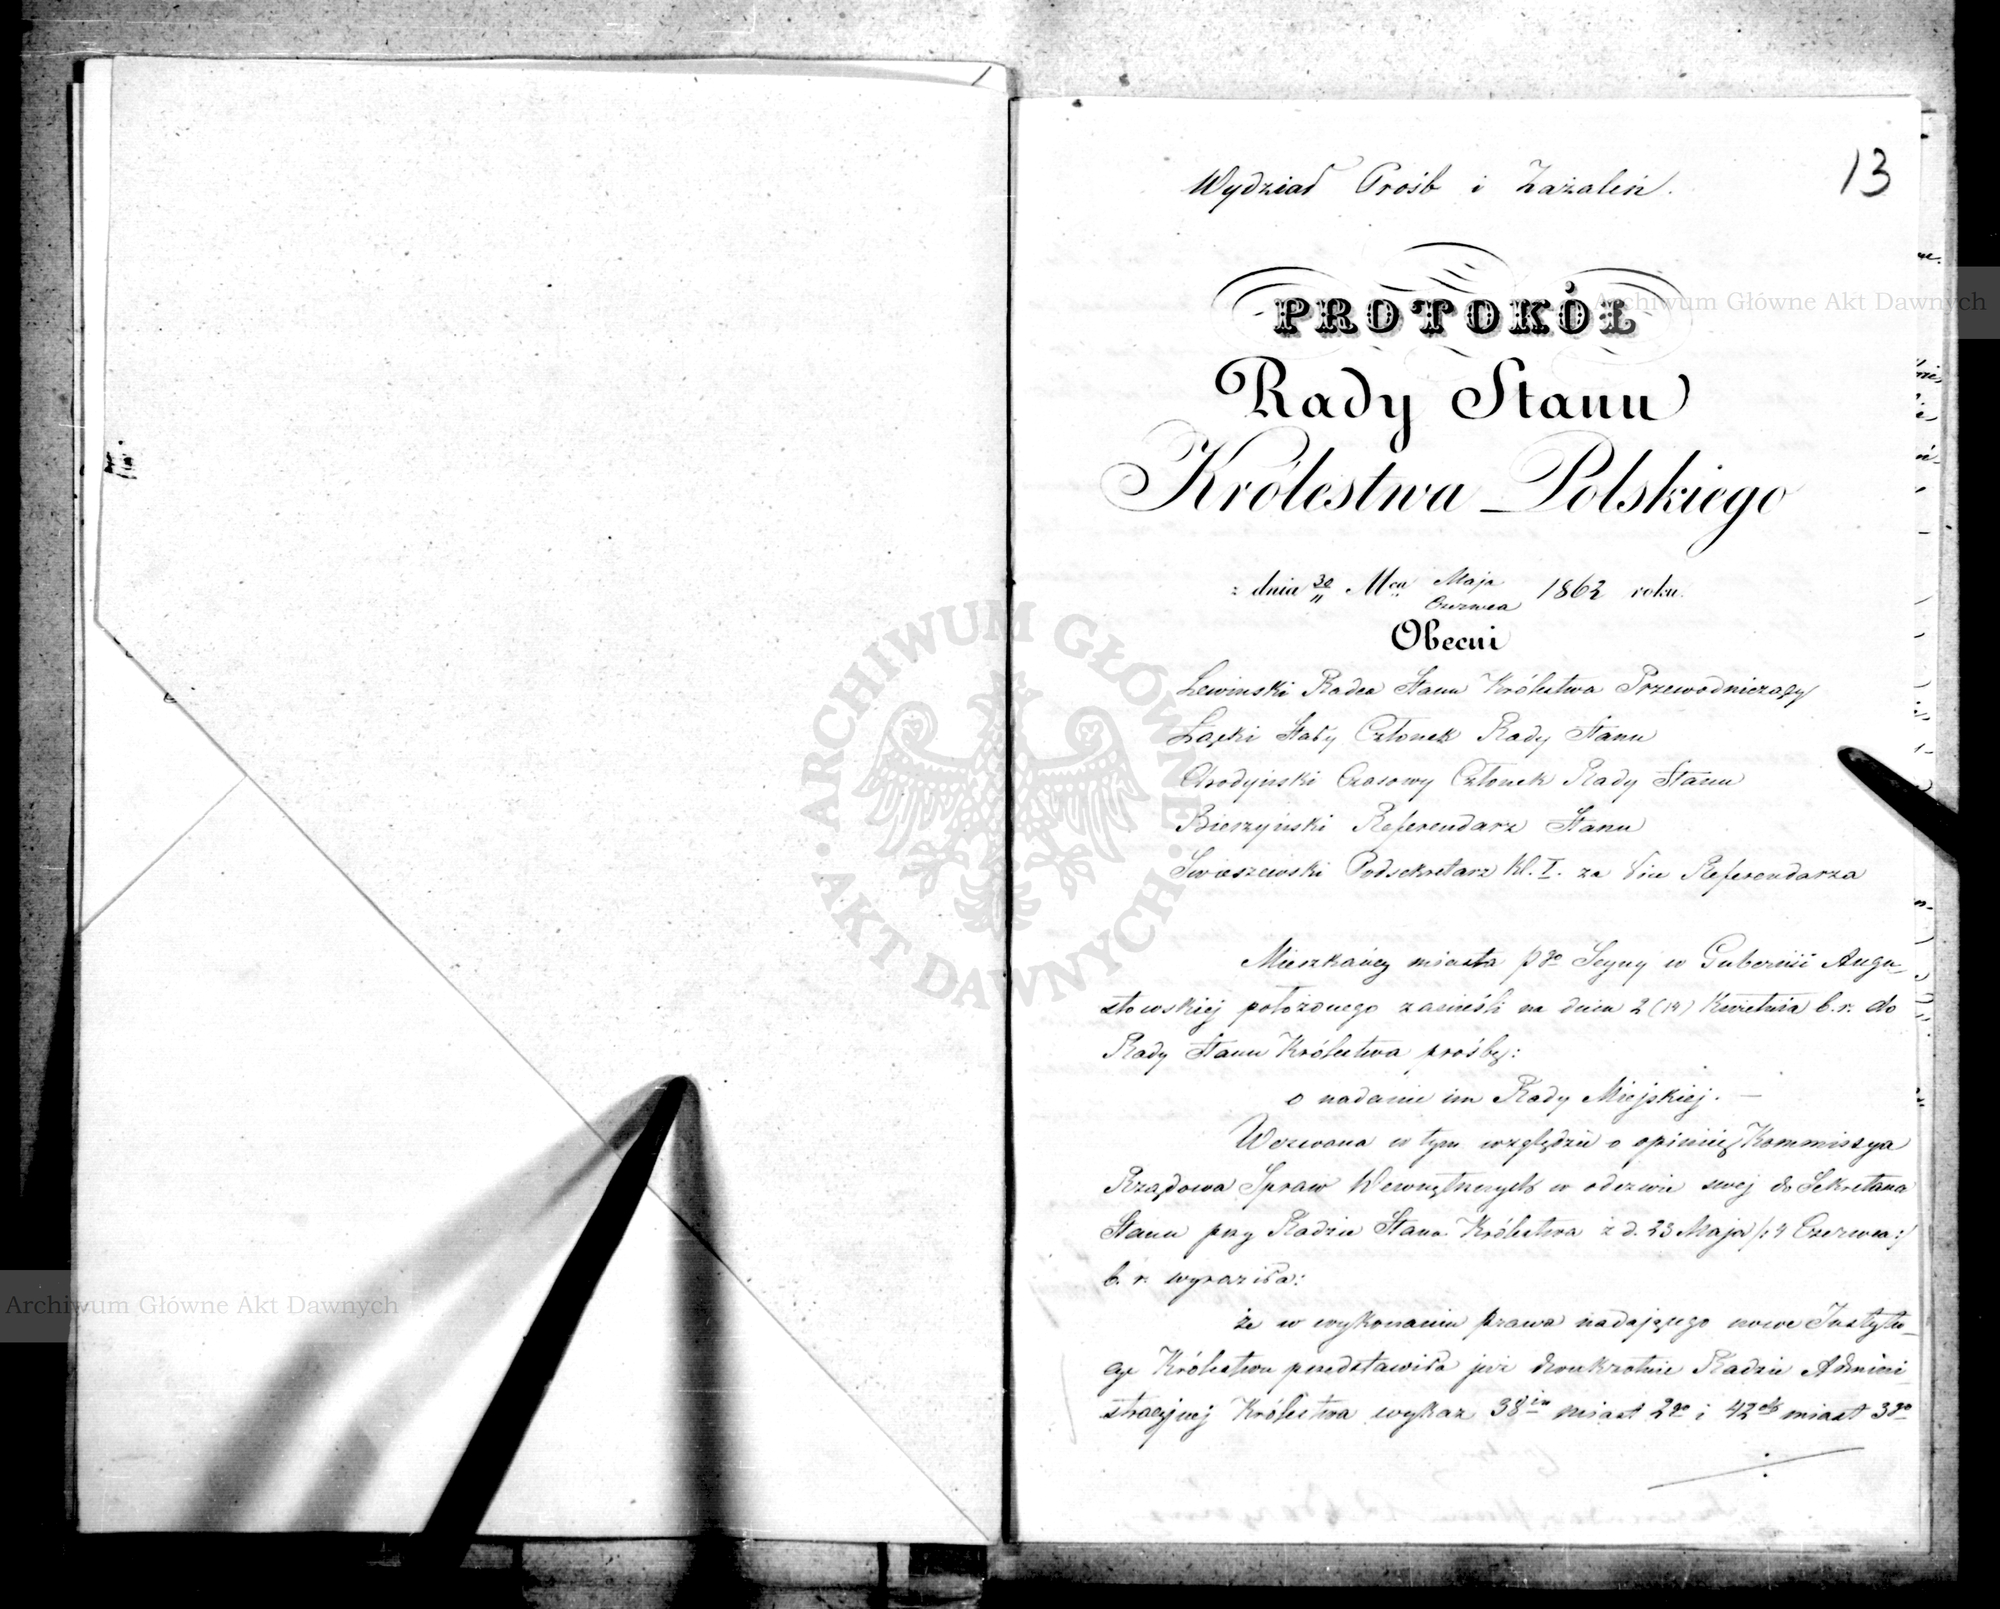 13
Wydział Próśb i Zażaleń.
PROTOKÓŁ
Rady Stanu
Królestwa Polskiego
z dnia 30/11 Mca Maja/Czerwca 1862 roku.
Obecni
Lewiński Radca Stanu Królestwa Przewodniczący
Łącki Stały Członek Rady Stanu
Chodyński Czasowy Członek Rady Stanu
Bierzyński Referendarz Stanu
Swieszewski Podsekretarz Kl. I. za Referendarza
Mieszkańcy miasta Seyny w Gubernii Augu-
stowskiej położonego zanieśli na dniu 2 (14) Kwietnia b.r. do
Rady Stanu Królestwa prośbę:
o nadanie im Rady Miejskiej. —
Wezwana w tym względzie o opinię Kommissya
Rządowa Spraw Wewnętrznych w odezwie swej do Sekretarza
Stanu przy Radzie Stanu Królestwa z d. 23 Maja /:4 Czerwca:/
b. r. wyraziła:
że w wykonaniu prawa nadającego nowe Instytu-
cye Królestwu przedstawiła już dwukrotnie Radzie Admini-
stracyjnej Królestwa wykaz 38iu miast 2go i 42ch miast 3go
Archiwum Główne Akt Dawnych
ARCHIWUM GŁÓWNE · AKT DAWNYCH ·
Archiwum Główne Akt Dawnych